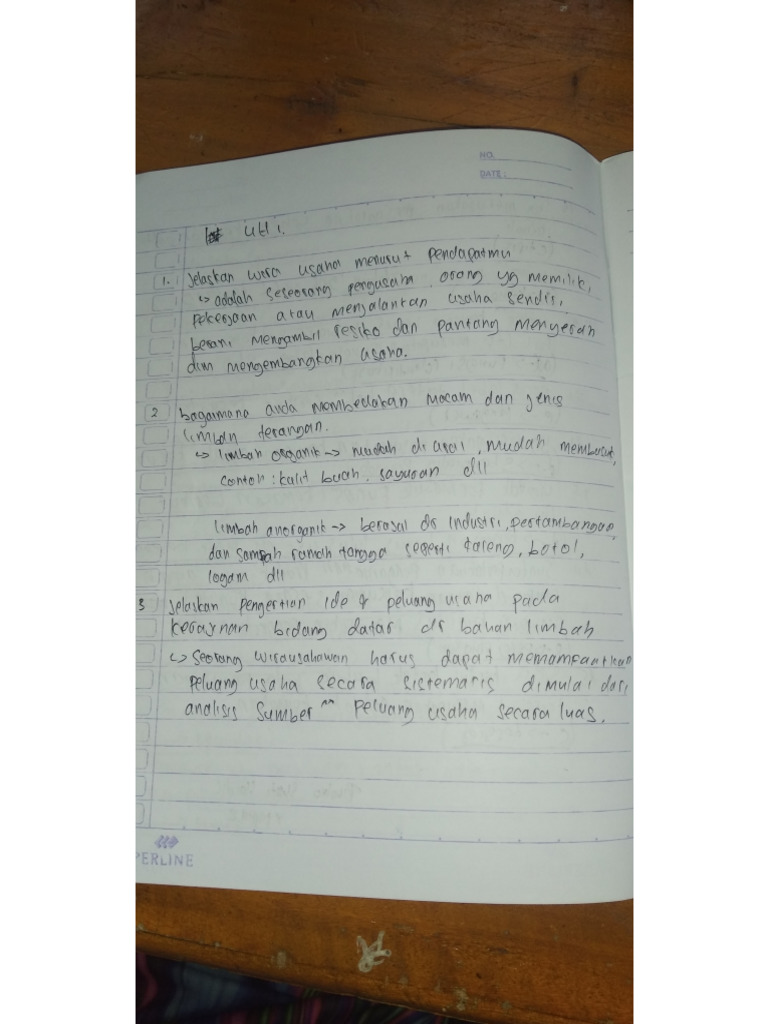 NO.
DATE:
UH 1.
1. Jelaskan wira usaha menurut pendapatmu
↳ adalah seseorang pengusaha, orang yg memiliki
pekerjaan atau menjalankan usaha sendiri,
berani mengambil resiko dan pantang menyerah
dlm mengembangkan usaha.
2 bagaimana anda membedakan macam dan jenis
limbah terangan.
↳ limbah organik → mudah di urai, mudah membusuk,
contoh : kulit buah, sayuran dll
limbah anorganik → berasal dr industri, pertambangan,
dan sampah rumah tangga seperti kaleng, botol,
logam dll
3 Jelaskan pengertian ide & peluang usaha pada
kerajinan bidang datar dr bahan limbah
↳ Seorang wirausahawan harus dapat memanfaatkan
peluang usaha secara sistematis dimulai dari
analisis sumber" peluang usaha secara luas.
PERLINE